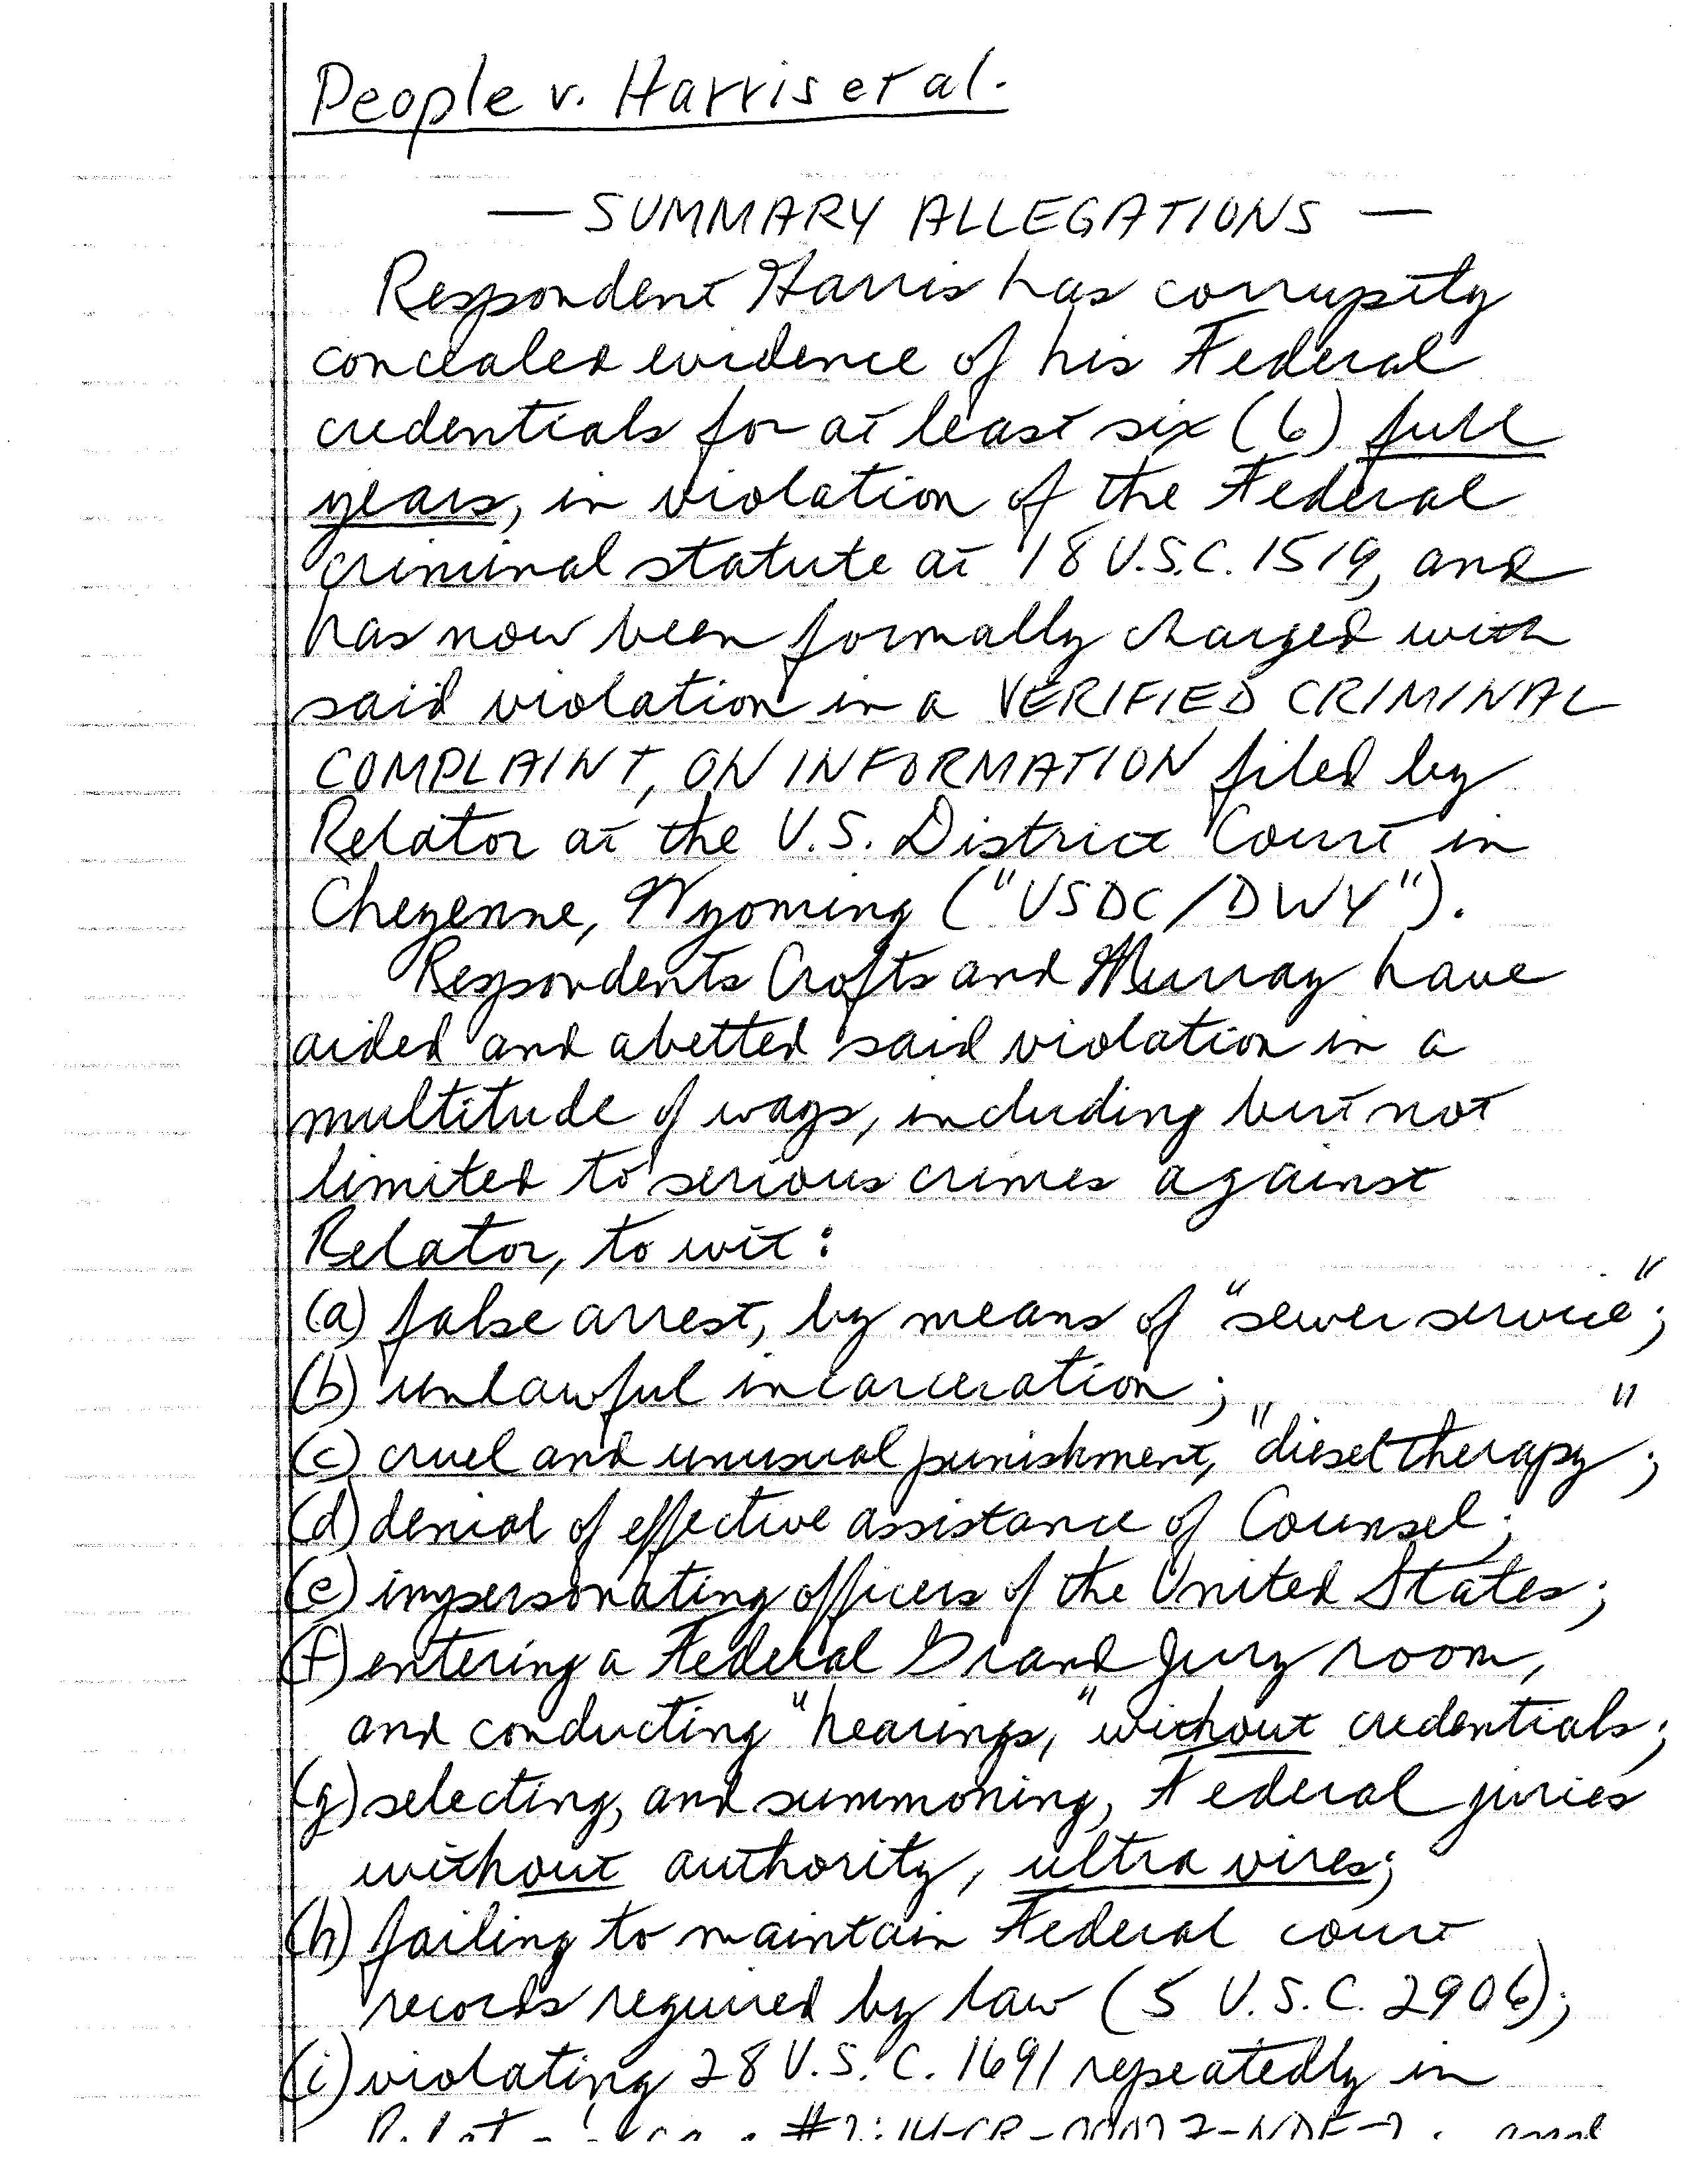 People v. Harris et al.
— SUMMARY ALLEGATIONS —
Respondent Harris has corruptly
concealed evidence of his Federal
credentials for at least six (6) full
years, in violation of the Federal
criminal statute at 18 U.S.C. 1519, and
has now been formally charged with
said violation in a VERIFIED CRIMINAL
COMPLAINT, ON INFORMATION filed by
Relator at the U.S. District Court in
Cheyenne, Wyoming ("USDC/DWY").
Respondents Crofts and Murray have
aided and abetted said violation in a
multitude of ways, including but not
limited to serious crimes against
Relator, to wit:
(a) false arrest, by means of "sewer service";
(b) unlawful incarceration;
(c) cruel and unusual punishment, "diesel therapy";
(d) denial of effective assistance of Counsel;
(e) impersonating officers of the United States;
(f) entering a Federal Grand Jury room,
and conducting "hearings," without credentials;
(g) selecting, and summoning, Federal juries
without authority, ultra vires;
(h) failing to maintain Federal court
records required by law (5 U.S.C. 2906);
(i) violating 28 U.S.C. 1691 repeatedly in
and